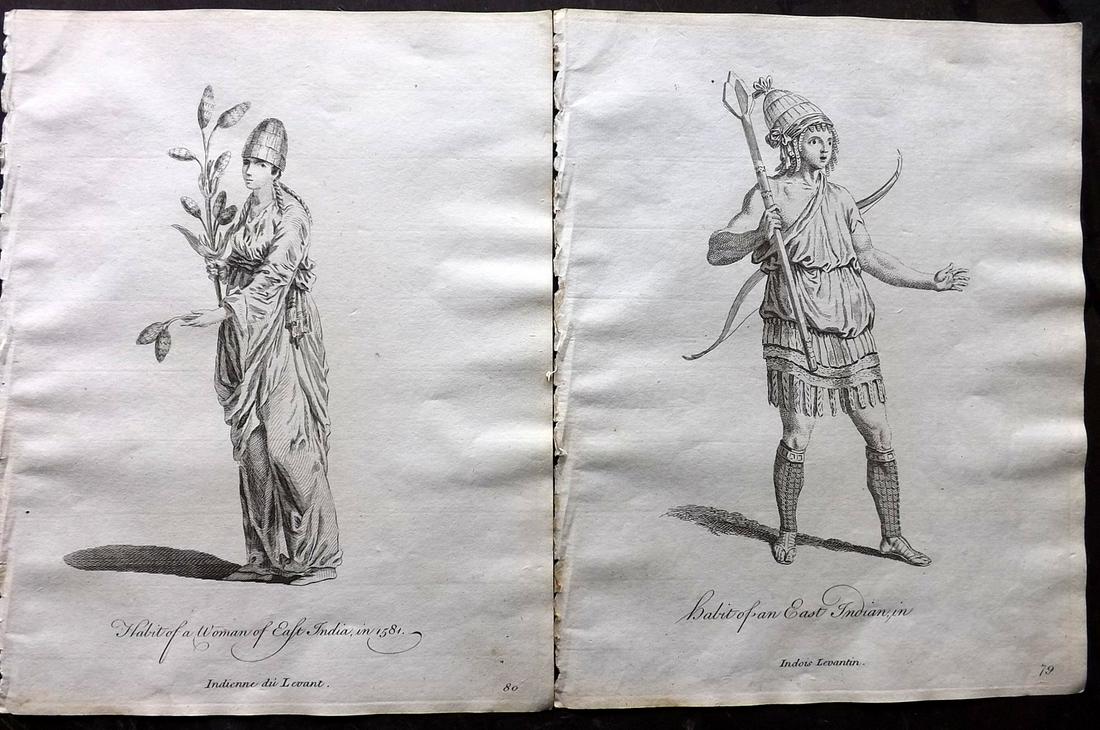 Habit of a Woman of East India, in 1581.
Indienne dú Levant.
80
Habit of an East Indian, in
Indois Levantin.
79